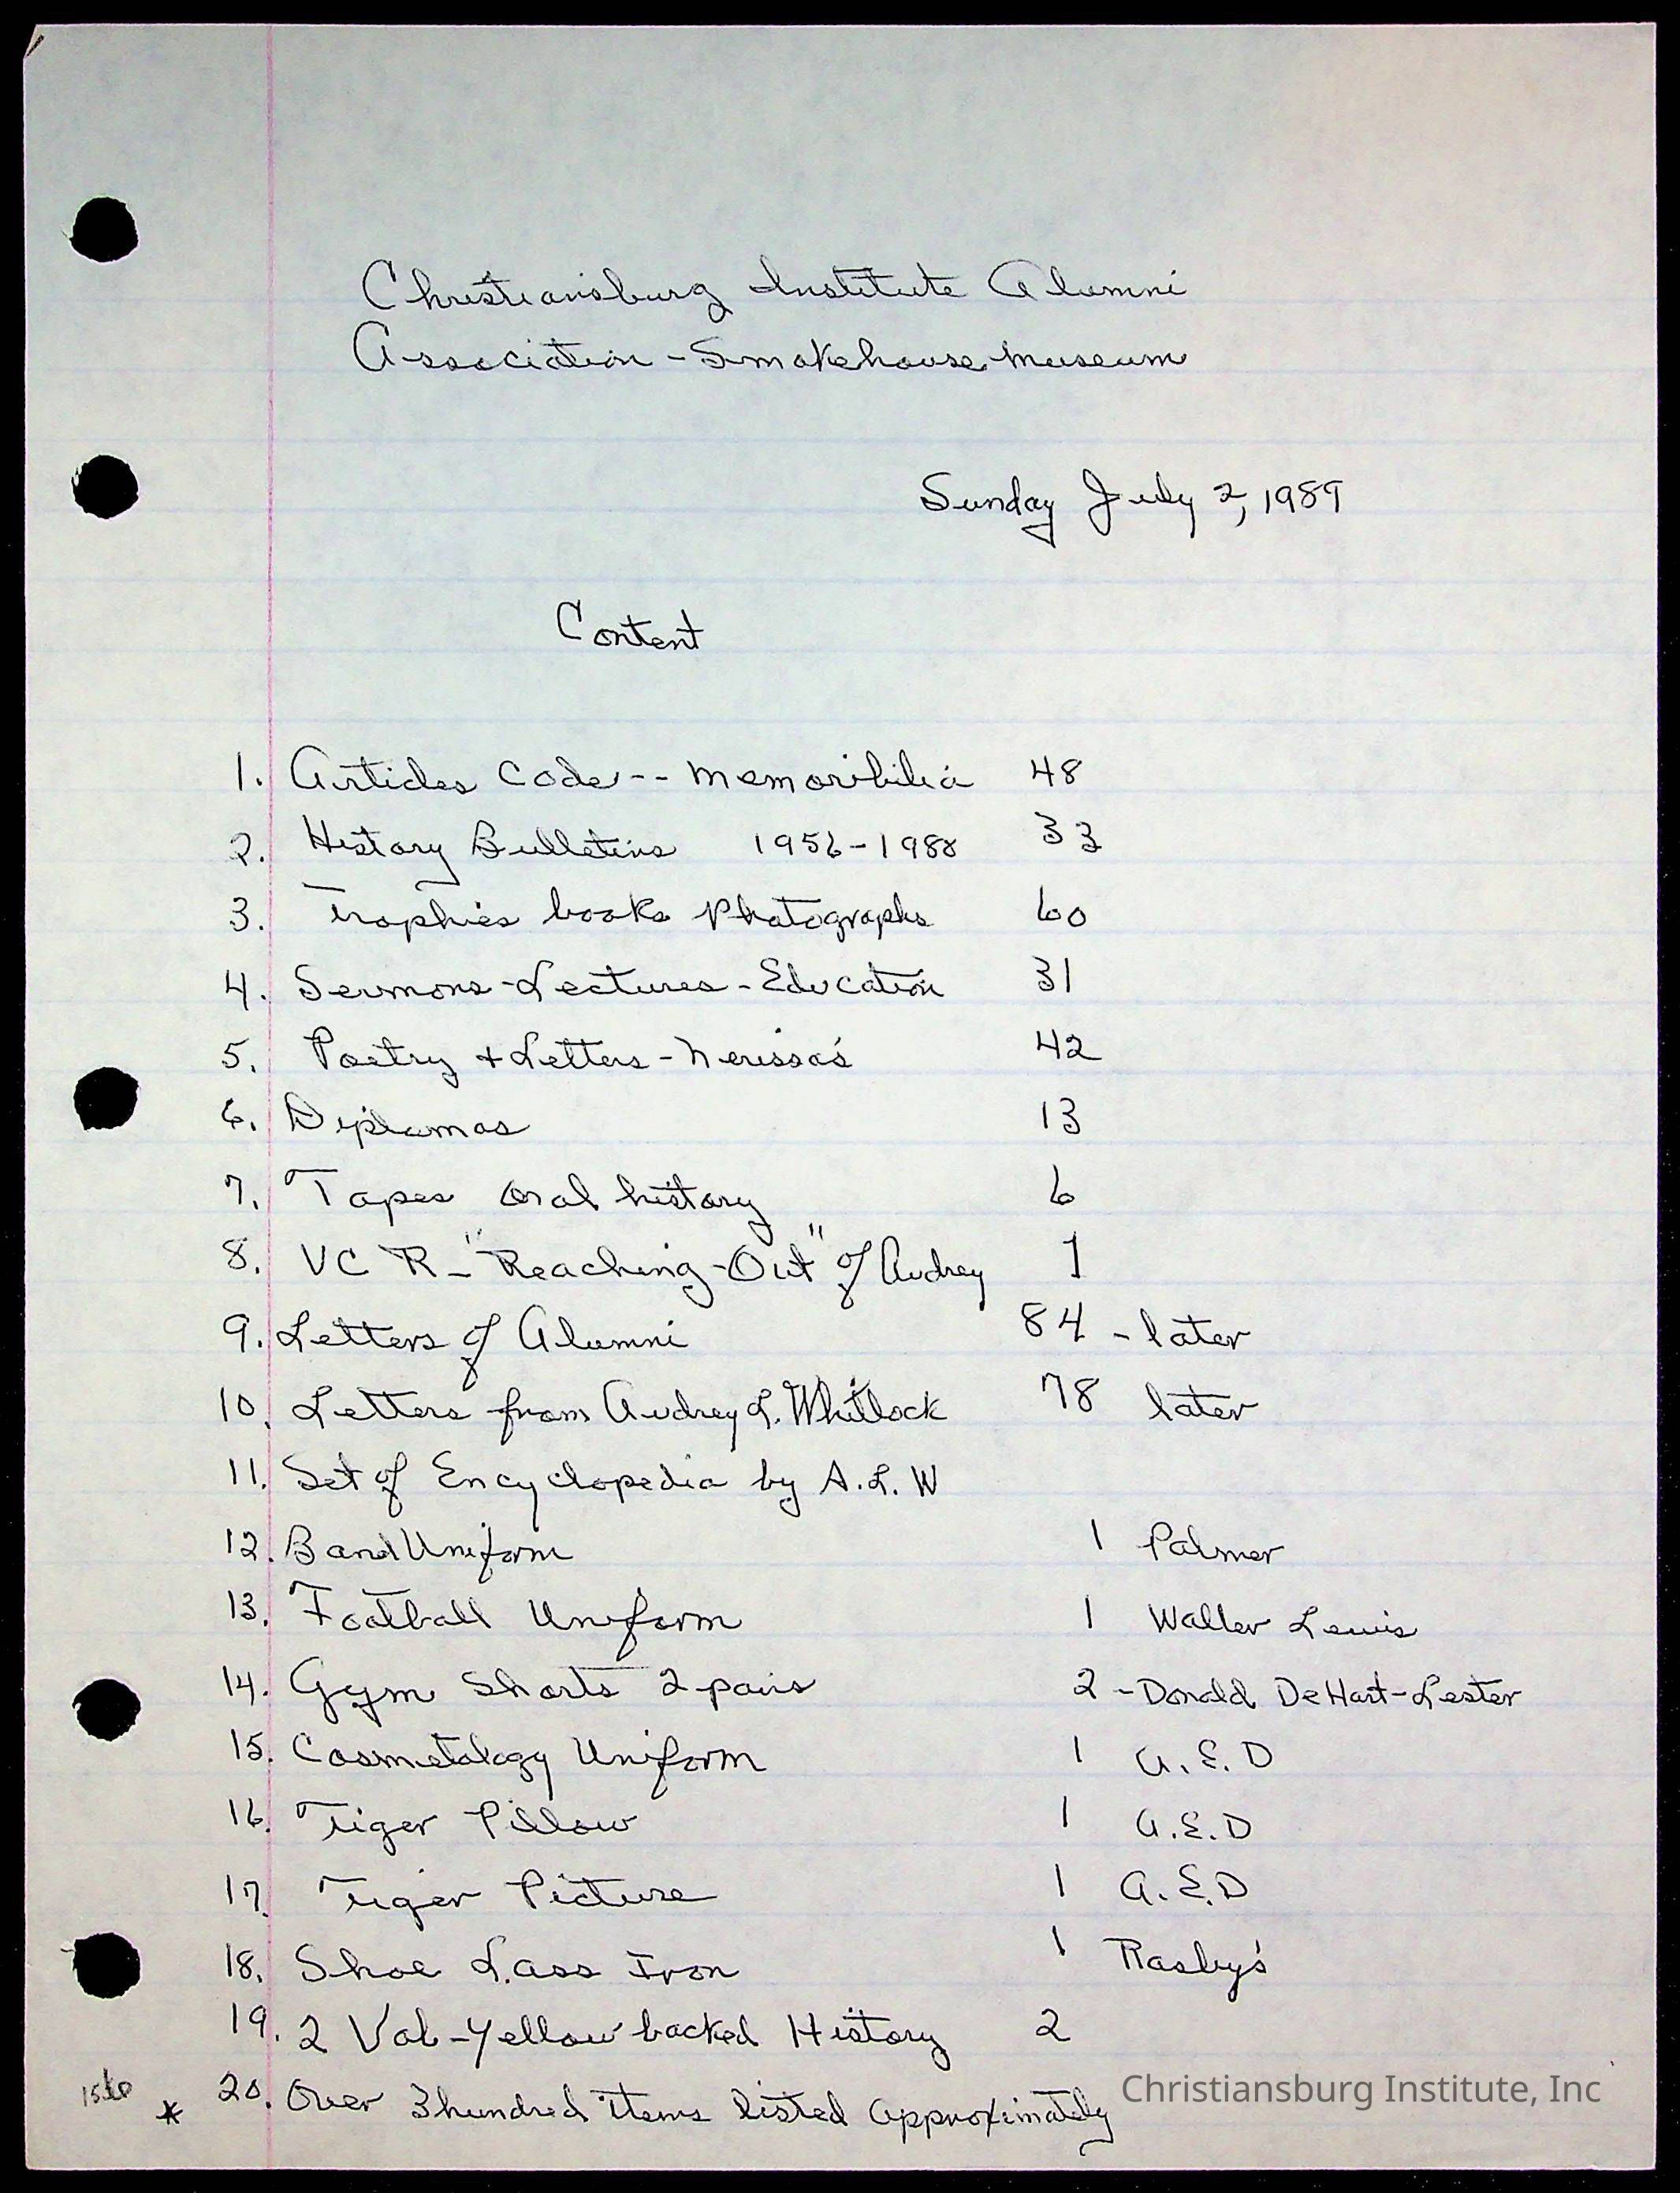 Christiansburg Institute Alumni
Association - Smokehouse Museum
Sunday July 2, 1989
Content
1. Articles Code -- Memoribilia 48
2. History Bulletins 1956-1988 33
3. Trophies books Photographs 60
4. Sermons-Lectures-Education 31
5. Poetry + Letters - Nerissa's 42
6. Diplomas 13
7. Tapes Oral history 6
8. VCR - "Reaching-Out" of Audrey 1
9. Letters of Alumni 84 - later
10. Letters from Audrey L. Whitlock 78 later
11. Set of Encyclopedia by A.L.W
12. Band Uniform 1 Palmer
13. Football Uniform 1 Walter Lewis
14. Gym Shorts 2 pairs 2 - Donald DeHart-Lester
15. Cosmetology Uniform 1 A.E.D
16. Tiger Pillow 1 A.E.D
17. Tiger Picture 1 A.E.D
18. Shoe Lass Iron 1 Rasby's
19. 2 Vol-Yellow backed History 2
* 20. Over 3 hundred items listed approximately
Christiansburg Institute, Inc